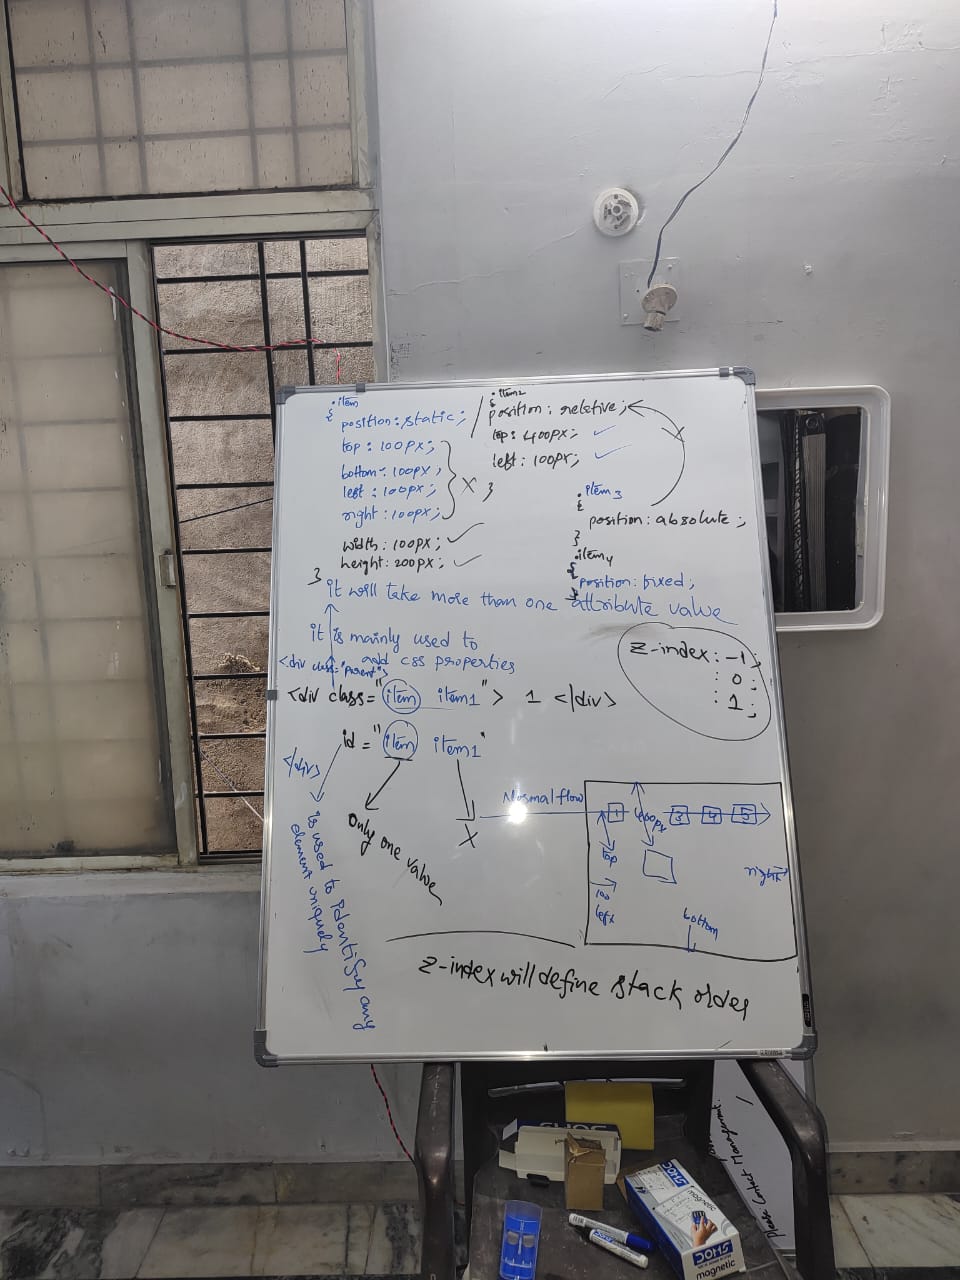 .item
{
position: static;
top: 100px;
bottom: 100px;
left: 100px;
right: 100px;
X
width: 100px;
height: 200px;
}
.item2
{
position: reletive;
top: 400px;
left: 100px;
}
.item3
{
position: absolute;
}
.item4
{
position: fixed;
}
it will take more than one attribute value
it is mainly used to
add css properties
<div class="parent">
<div class="item item1"> 1 </div>
id = "item item1"
</div>
is used to identify any
element uniquely
Only one value
X
z-index: -1;
: 0;
: 1;
Normal flow
1
400px
3
4
5
top
100
left
right
bottom
z-index will define stack order
DOMS
magnetic
DOMS
magnetic
Please Contact Management.